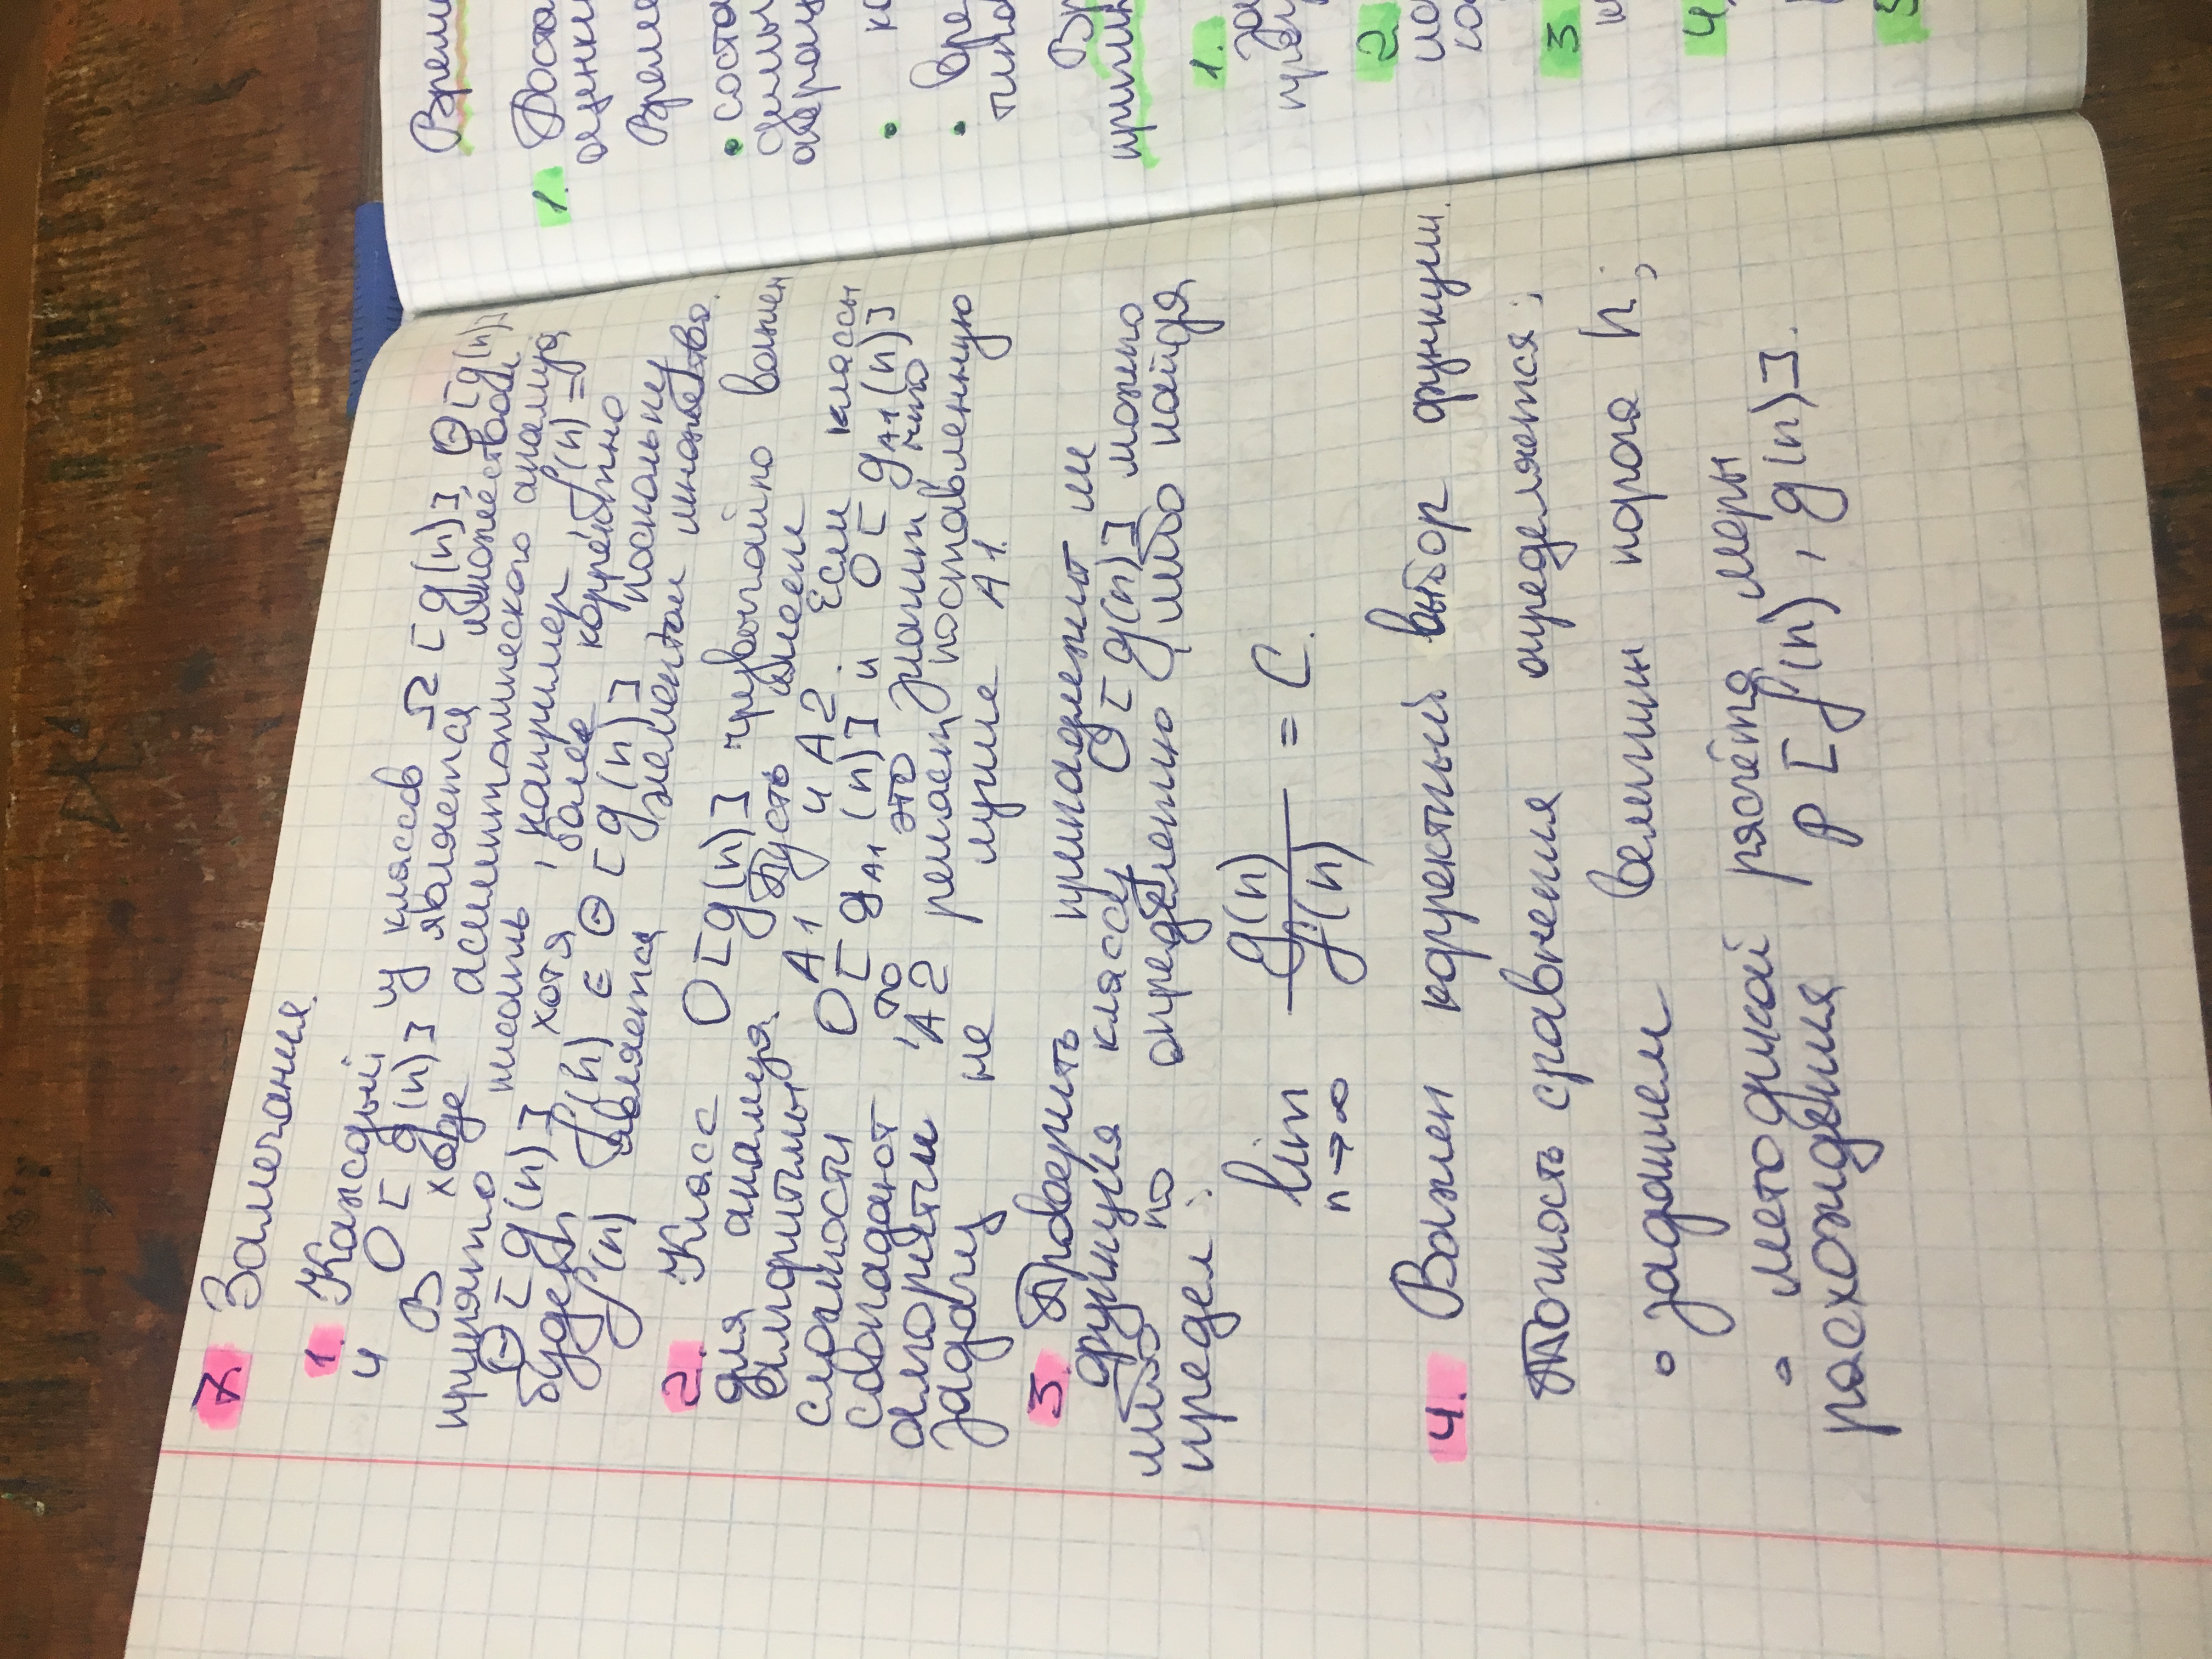 7. Замечания.
1. Каждый из классов Ω[g(n)], Θ[g(n)]
и O[g(n)] является множеством.
В ходе асимптотического анализа
принято писать, например, f(n) =
Θ[g(n)], хотя более корректно
будет f(n) ∈ Θ[g(n)], поскольку
f(n) является элементом множества.
2. Класс O[g(n)] чрезвычайно важен
для анализа. Пусть имеем
алгоритмы A1 и A2. Если классы
сложности O[g_A1(n)] и O[g_A1(n)]
совпадают, то это значит, что
алгоритм A2 решает поставленную
задачу не лучше A1.
3. Проверить принадлежит ли
функция классу O[g(n)] можно
либо по определению, либо найдя
предел:
lim n→∞ g(n)/f(n) = C.
4. Важен корректный выбор функции.
Точность сравнения определяется:
• заданием величин порога h;
• методикой расчёта меры
расхождения ρ[f(n), g(n)].
1.
оценки
•
•
•
1.
2
3
4.
5